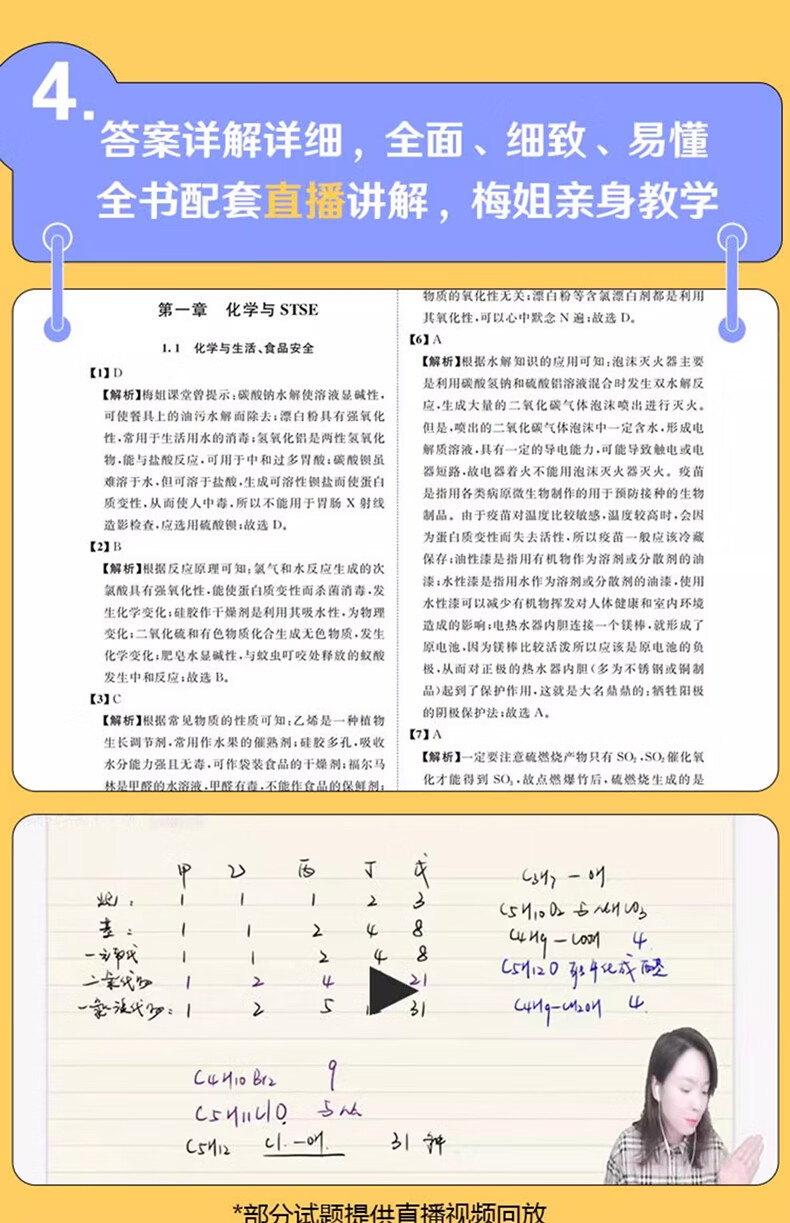 4.
答案详解详细，全面、细致、易懂
全书配套直播讲解，梅姐亲身教学
第一章　化学与STSE
1.1　化学与生活、食品安全
【1】D
【解析】梅姐课堂曾提示：碳酸钠水解使溶液显碱性，
可使餐具上的油污水解而除去；漂白粉具有强氧化
性，常用于生活用水的消毒；氢氧化铝是两性氢氧化
物，能与盐酸反应，可用于中和过多胃酸；碳酸钡虽
难溶于水，但可溶于盐酸，生成可溶性钡盐而使蛋白
质变性，从而使人中毒，所以不能用于胃肠X射线
造影检查，应选用硫酸钡；故选D。
【2】B
【解析】根据反应原理可知：氯气和水反应生成的次
氯酸具有强氧化性，能使蛋白质变性而杀菌消毒，发
生化学变化；硅胶作干燥剂是利用其吸水性，为物理
变化；二氧化硫和有色物质化合生成无色物质，发生
化学变化；肥皂水显碱性，与蚊虫叮咬处释放的蚁酸
发生中和反应；故选B。
【3】C
【解析】根据常见物质的性质可知：乙烯是一种植物
生长调节剂，常用作水果的催熟剂；硅胶多孔，吸收
水分能力强且无毒，可作袋装食品的干燥剂；福尔马
林是甲醛的水溶液，甲醛有毒，不能作食品的保鲜剂；
物质的氧化性无关；漂白粉等含氯漂白剂都是利用
其氧化性，可以心中默念N遍；故选D。
【6】A
【解析】根据水解知识的应用可知：泡沫灭火器主要
是利用碳酸氢钠和硫酸铝溶液混合时发生双水解反
应，生成大量的二氧化碳气体泡沫喷出进行灭火。
但是，喷出的二氧化碳气体泡沫中一定含水，形成电
解质溶液，具有一定的导电能力，可能导致触电或电
器短路，故电器着火不能用泡沫灭火器灭火。疫苗
是指用各类病原微生物制作的用于预防接种的生物
制品。由于疫苗对温度比较敏感，温度较高时，会因
为蛋白质变性而失去活性，所以疫苗一般应该冷藏
保存；油性漆是指用有机物作为溶剂或分散剂的油
漆；水性漆是指用水作为溶剂或分散剂的油漆，使用
水性漆可以减少有机物挥发对人体健康和室内环境
造成的影响；电热水器内胆连接一个镁棒，就形成了
原电池，因为镁棒比较活泼所以应该是原电池的负
极，从而对正极的热水器内胆（多为不锈钢或铜制
品）起到了保护作用，这就是大名鼎鼎的：牺牲阳极
的阴极保护法；故选A。
【7】A
【解析】一定要注意硫燃烧产物只有SO₂，SO₂催化氧
化才能得到SO₃，故点燃爆竹后，硫燃烧生成的是
甲 乙 丙 丁 戊
烃： 1 1 1 2 3
基： 1 1 2 4 8
一卤代 1 1 2 4 8
1 2 4 21
1 2 5 31
C₃H₇一醇
C₅H₁₀O₂与NaHCO₃
C₄H₉-COOH 4
C₅H₁₂O 醛
C₄H₉-CH₂OH 4
C₄H₁₀Br₂ 9
C₅H₁₁ClO 与Na
C₅H₁₂ 31 种
*部分试题提供直播视频回放